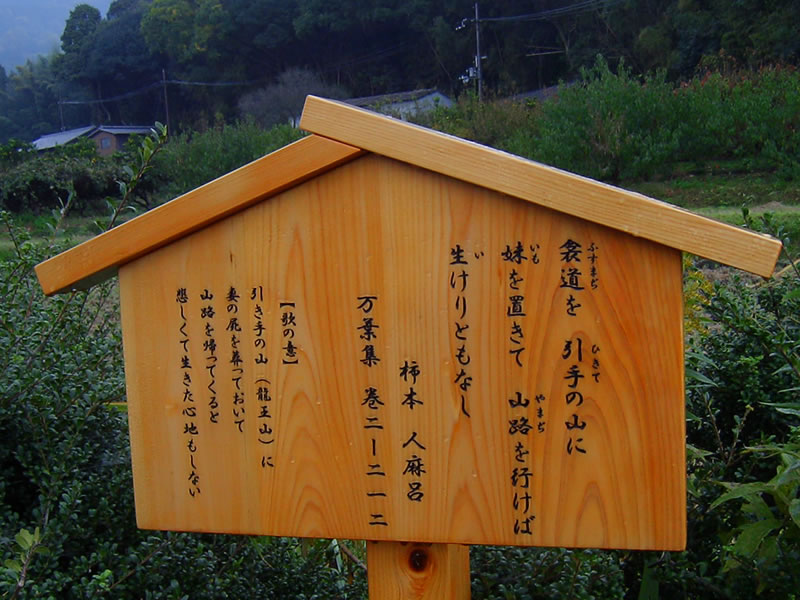 衾道を 引手の山に
妹を置きて 山路を行けば
生けりともなし
柿本 人麻呂
万葉集 巻二ー二一二
【歌の意】
引き手の山（龍王山）に
妻の屍を葬っておいて
山路を帰ってくると
悲しくて生きた心地もしない
ふすまぢ
ひきて
いも
やまぢ
い